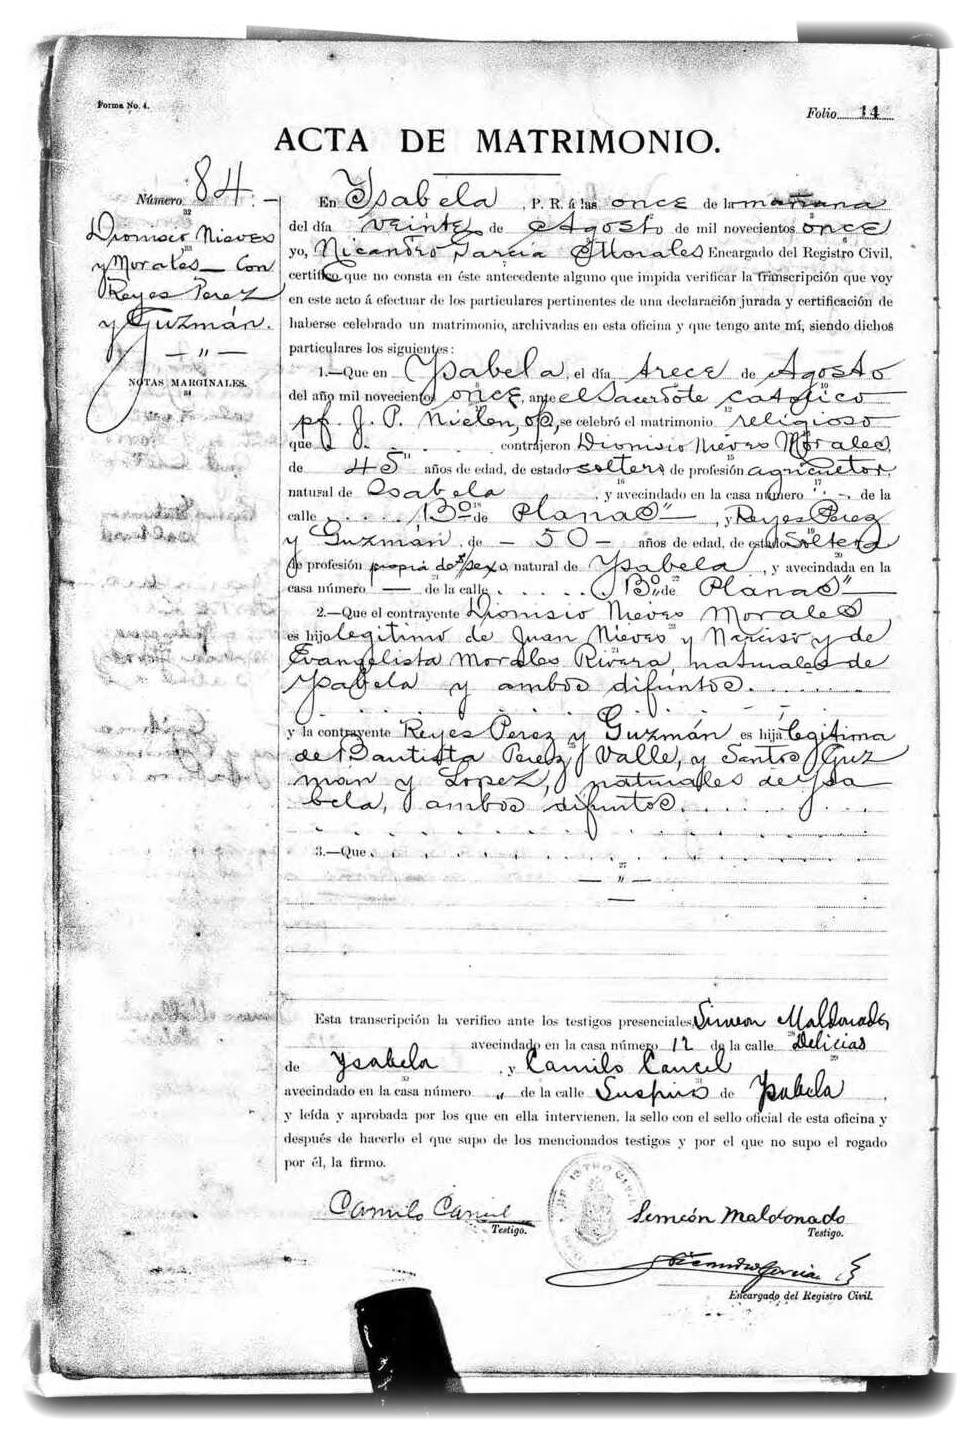 Forma No. 4.
Folio 14
ACTA DE MATRIMONIO.
Número 84.
32
Dionisio Nieves
33
y Morales — Con
Reyes Perez
y Guzmán.
— " —
NOTAS MARGINALES.
34
En Ysabela, P. R. á las once de la mañana
del día veinte de Agosto de mil novecientos once
yo, Nicandro García Morales Encargado del Registro Civil,
certifico que no consta en éste antecedente alguno que impida verificar la transcripción que voy
en este acto á efectuar de los particulares pertinentes de una declaración jurada y certificación de
haberse celebrado un matrimonio, archivadas en esta oficina y que tengo ante mí, siendo dichos
particulares los siguientes:
1.—Que en Ysabela, el día trece de Agosto
del año mil novecientos once, ante el Sacerdote catolico
J. P. se celebró el matrimonio religioso
que contrajeron Dionisio Nieves Morales,
de 45 años de edad, de estado soltero de profesión agricultor,
natural de Isabela, y avecindado en la casa número de la
calle Bº de Planas" —, y Reyes Perez
y Guzmán, de — 50 — años de edad, de estado soltera
de profesión propia de su sexo, natural de Ysabela, y avecindada en la
casa número — de la calle Bº de Planas" —
2.—Que el contrayente Dionisio Nieves Morales
es hijo legitimo de Juan Nieves y Narciso y de
Evangelista Morales Rivera, naturales de
Ysabela y ambos difuntos.
y la contrayente Reyes Perez y Guzmán es hija legitima
de Bautista Perez y Valle, y Santos Guz
man y Lopez, naturales de Ysa
bela, y ambos difuntos.
3.—Que
27
— " —
—
Esta transcripción la verifico ante los testigos presenciales Simeon Maldonado,
avecindado en la casa número 12 de la calle Delicias
de Ysabela, y Camilo Cancel
avecindado en la casa número " de la calle Suspiro de Ysabela,
y leída y aprobada por los que en ella intervienen, la sello con el sello oficial de esta oficina y
después de hacerlo el que supo de los mencionados testigos y por el que no supo el rogado
por él, la firmo.
Camilo Cancel
Testigo.
Simeón Maldonado
Testigo.
Nicandro Garcia
Encargado del Registro Civil.